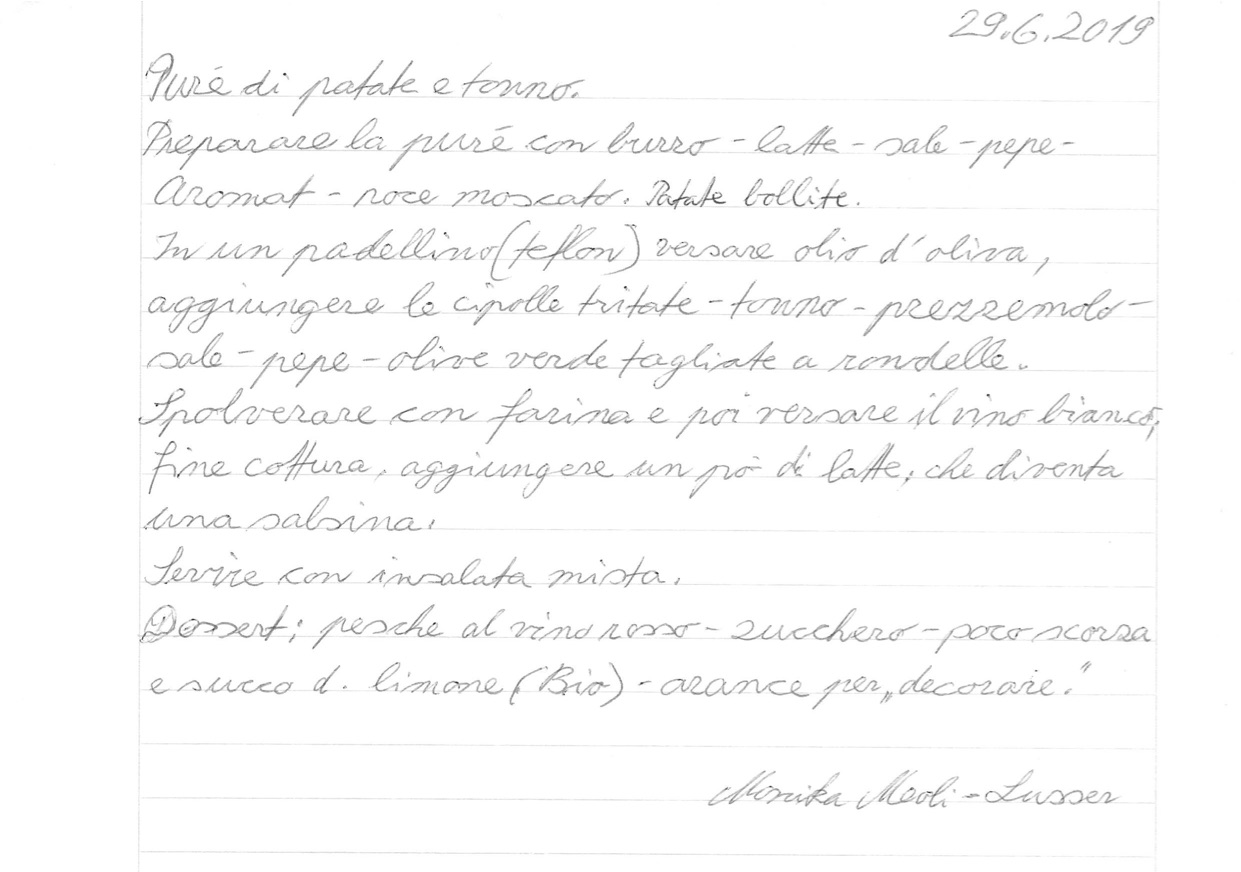 29.6.2019
Puré di patate e tonno.
Preparare la puré con burro - latte - sale - pepe -
Aromat - noce moscato. Patate bollite.
In un padellino (teflon) versare olio d'oliva,
aggiungere le cipolle tritate - tonno - prezzemolo -
sale - pepe - olive verde tagliate a rondelle.
Spolverare con farina e poi versare il vino bianco,
fine cottura, aggiungere un pò di latte, che diventa
una salsina.
Servire con insalata mista.
Dessert; pesche al vino rosso - zucchero - poco scorza
e succo d. limone (Bio) - arance per „decorare."
Monika Meoli - Lusser